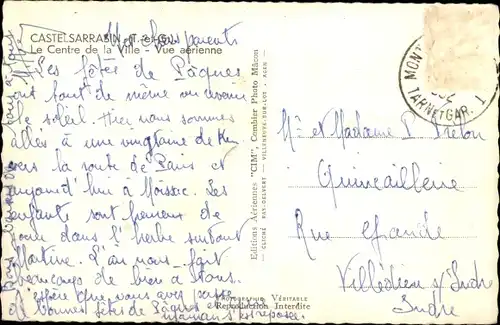 CASTELSARRASIN (T.-et-G.)
Le Centre de la Ville - Vue aérienne
Mes chers parents
Les fêtes de Pâques
ont tout de même vu revenir
le soleil. Hier nous sommes
allés à une vingtaine de km
vers la route de Paris et
aujourd'hui à Moissac. Les
enfants sont heureux de
jouer dans l'herbe surtout
Martine. L'air nous fait
beaucoup de bien à tous.
J'espère que vous avez passé
de bonnes fêtes de Pâques et
maman s'est reposée.
Editions Aériennes "CIM", Combier Photo Mâcon
CLICHÉ RAY-DELVERT - VILLENEUVE-SUR-LOT - AGEN
PHOTOGRAPHIE VÉRITABLE
Reproduction Interdite
MONT
TARNETGAR. 1
Mr et Madame P.
Quincaillerie
Rue Grande
Villedieu s/ Indre
Indre